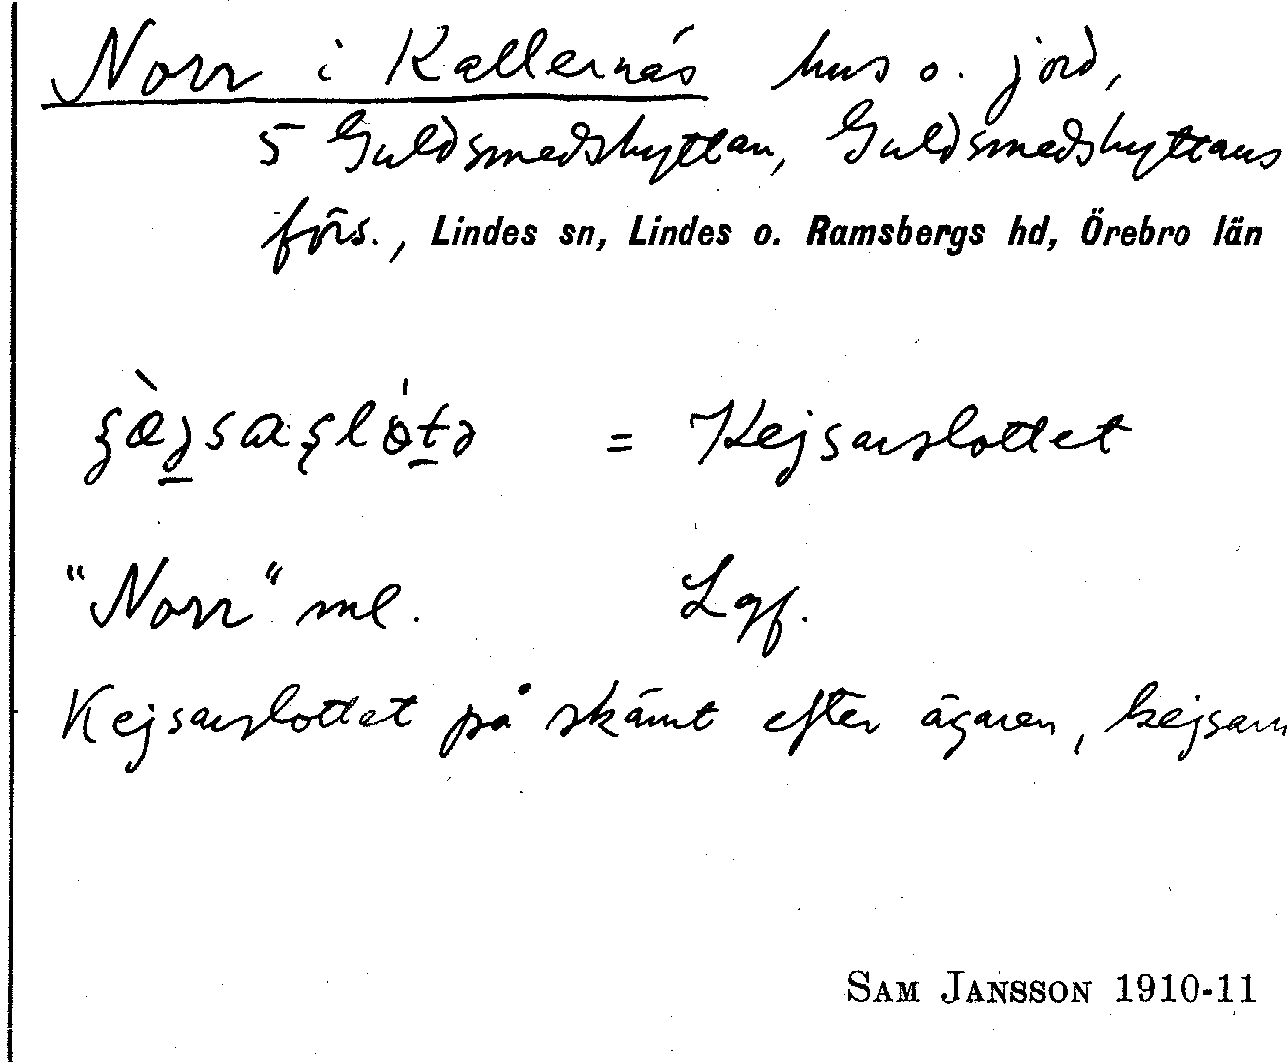 Norr i Kallernäs hus o. jord,
5 Guldsmedshyttan, Guldsmedshyttans
förs., Lindes sn, Lindes o. Ramsbergs hd, Örebro län
= Kejsarslottet
"Norr" ml. Lgf.
Kejsarslottet på skämt efter ägaren, kejsarn
SAM JANSSON 1910-11